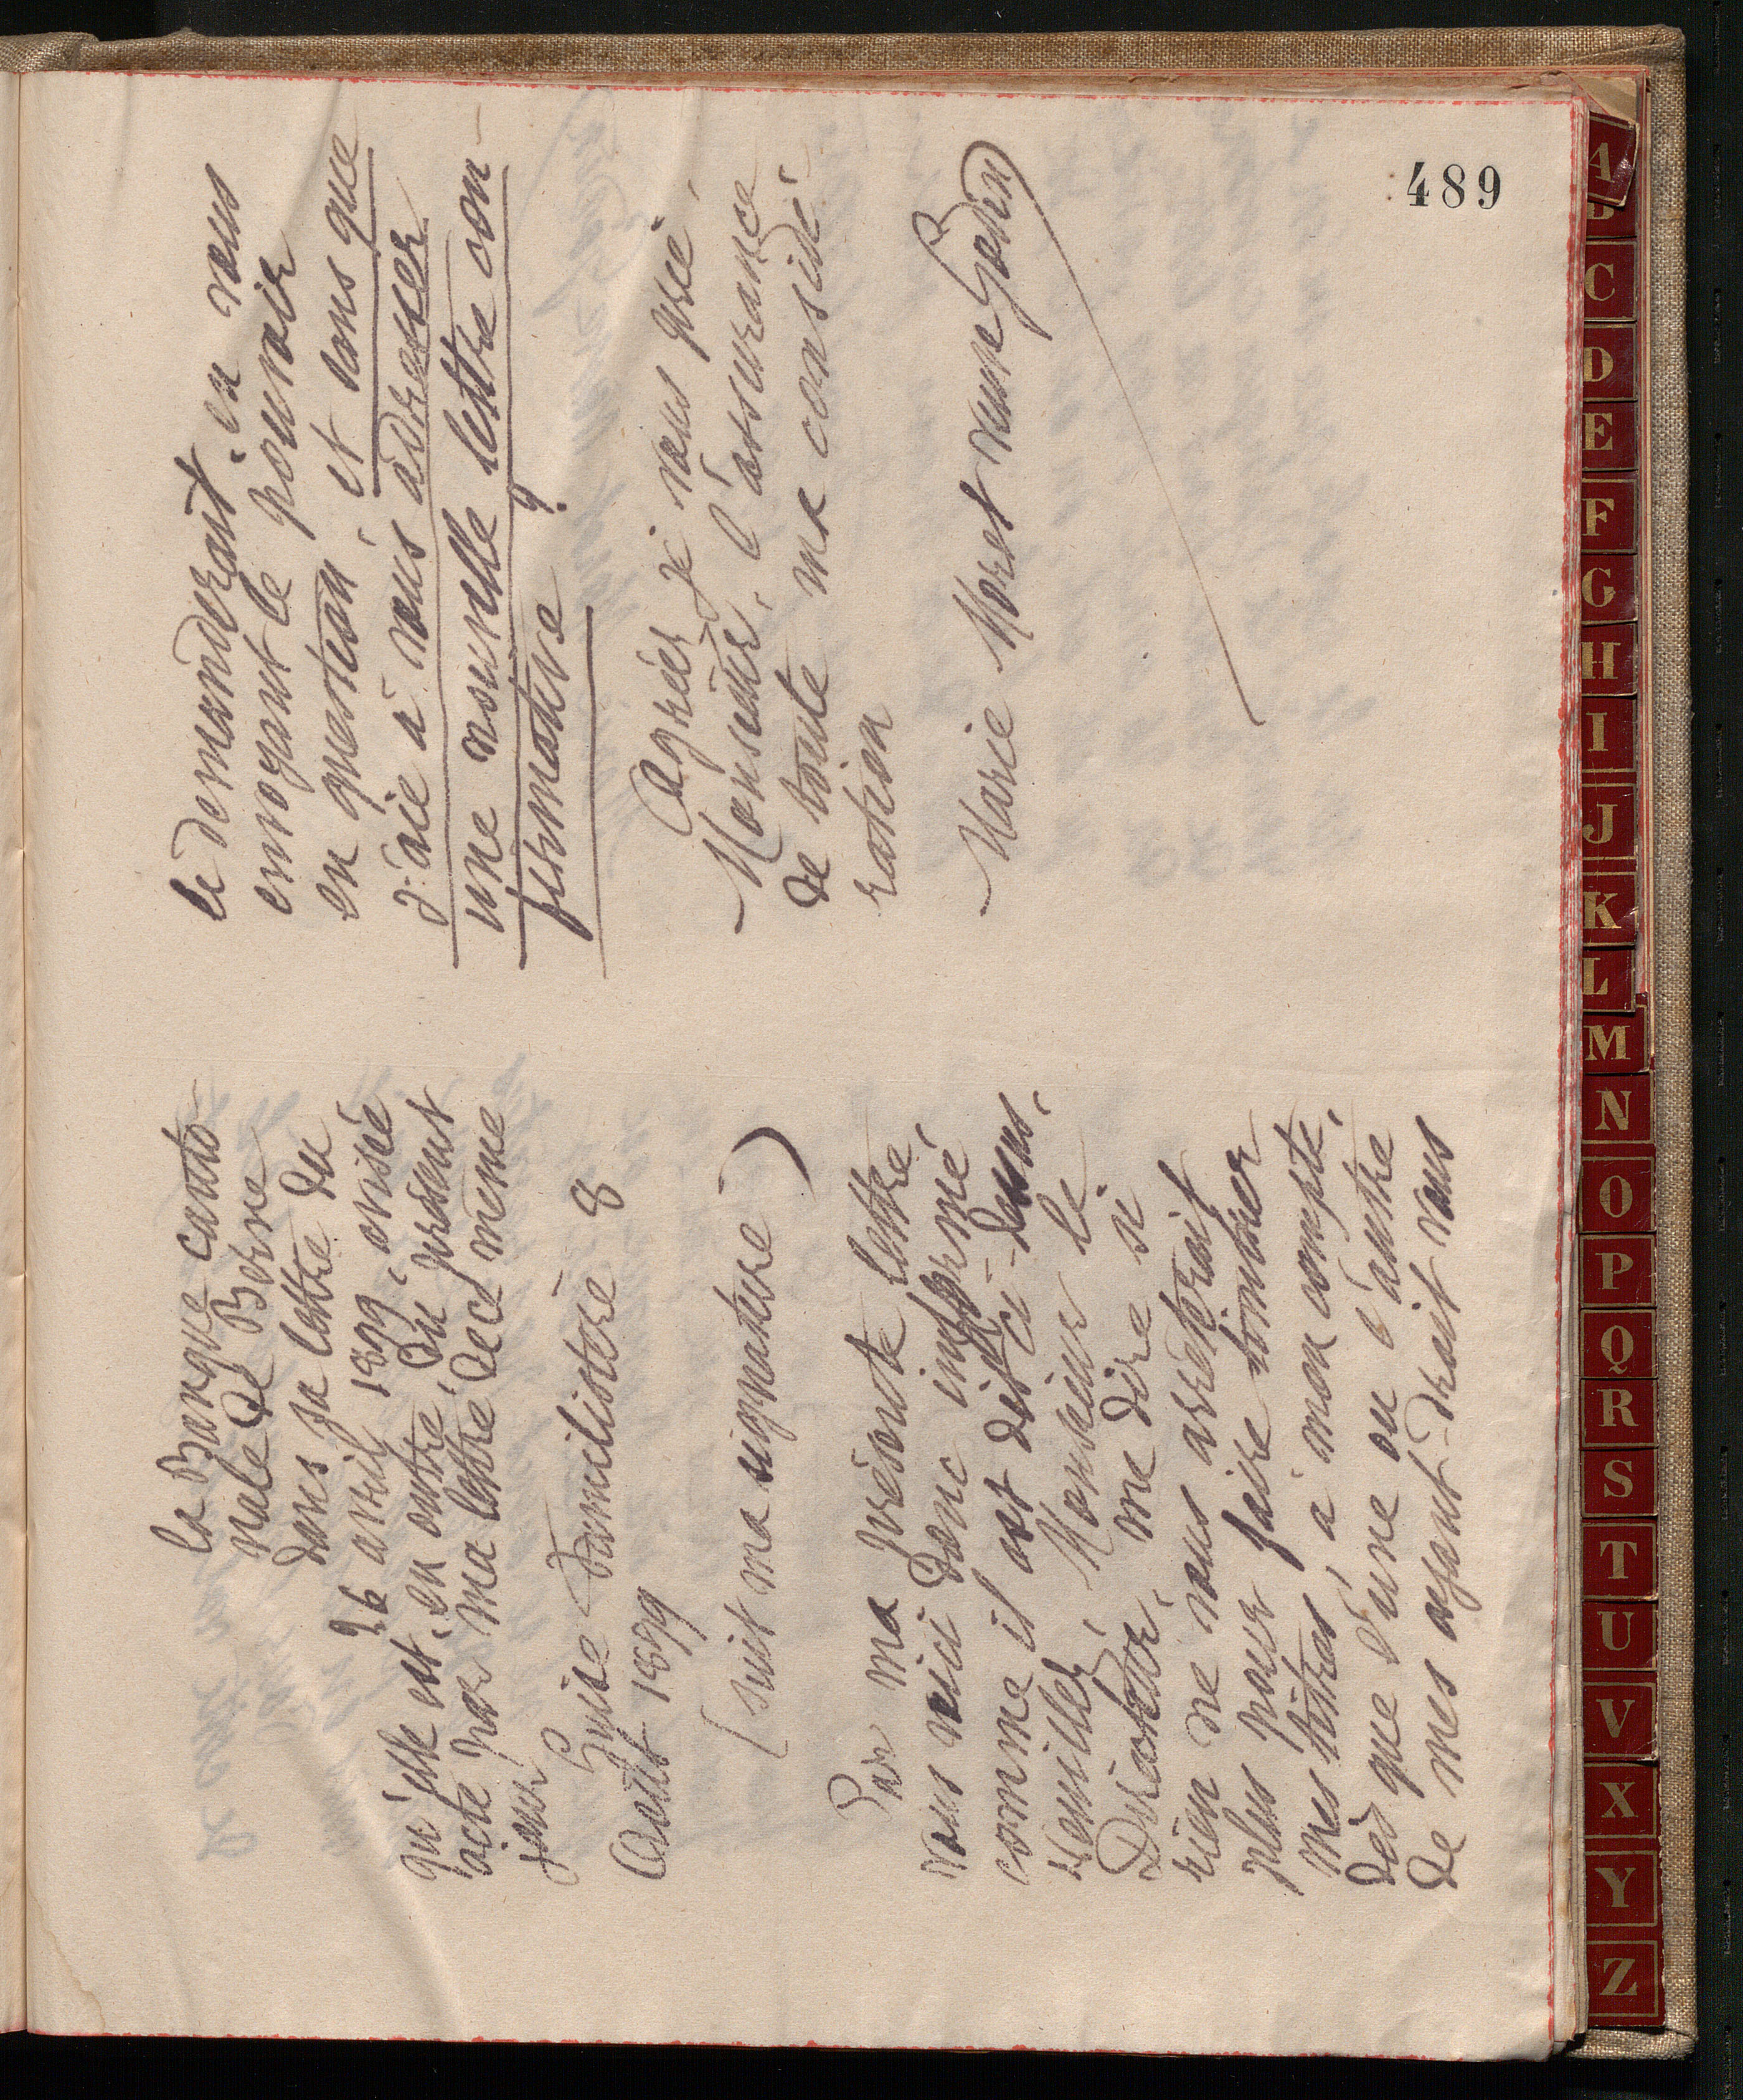 la Banque canto-
nale de Berne
dans sa lettre du
26 avril 1899, avisée
qu'elle est, en outre, du présent
acte par ma lettre de ce même
jour
Guise Familistère 8
Août 1899
(suit ma signature)
Par ma présente lettre,
vous voici donc informé
comme il est dit ci-dessus.
Veuillez, Monsieur le
Directeur, me dire si
rien ne vous arrêterait
plus pour faire tomber
mes titres à mon compte,
dès que l'une ou l'autre
de mes ayant-droit vous
le demanderait, en vous
envoyant le pouvoir
en question, et sans que
j'aie à vous adresser
une nouvelle lettre con-
firmative ?
Agréez, je vous prie,
Monsieur, l'assurance
de toute ma considé-
ration
Marie Moret veuve Godin
489
A
C
D
E
F
G
H
I
J
K
L
M
N
O
P
Q
R
S
T
U
V
X
Y
Z